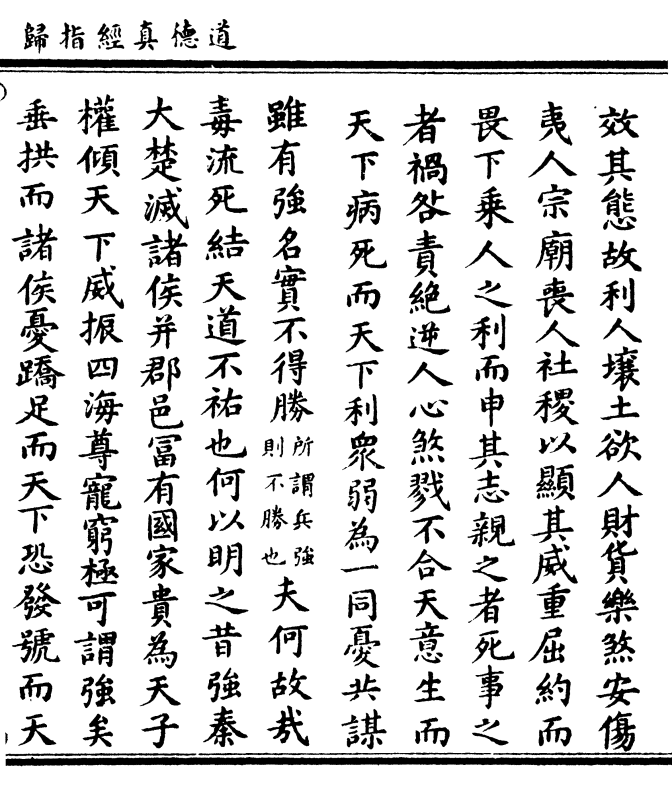 道德真經指歸
效其態故利人壤土欲人財貨樂煞安傷
夷人宗廟喪人社稷以顯其威重屈約而
畏下乘人之利而申其志親之者死事之
者禍咎責絕逆人心煞戮不合天意生而
天下病死而天下利衆弱為一同憂共謀
雖有強名實不得勝所謂兵強則不勝也夫何故哉
毒流死結天道不祐也何以明之昔強秦
大楚滅諸侯并郡邑冨有國家貴為天子
權傾天下威振四海尊寵窮極可謂強矣
垂拱而諸侯憂蹻足而天下恐發號而天